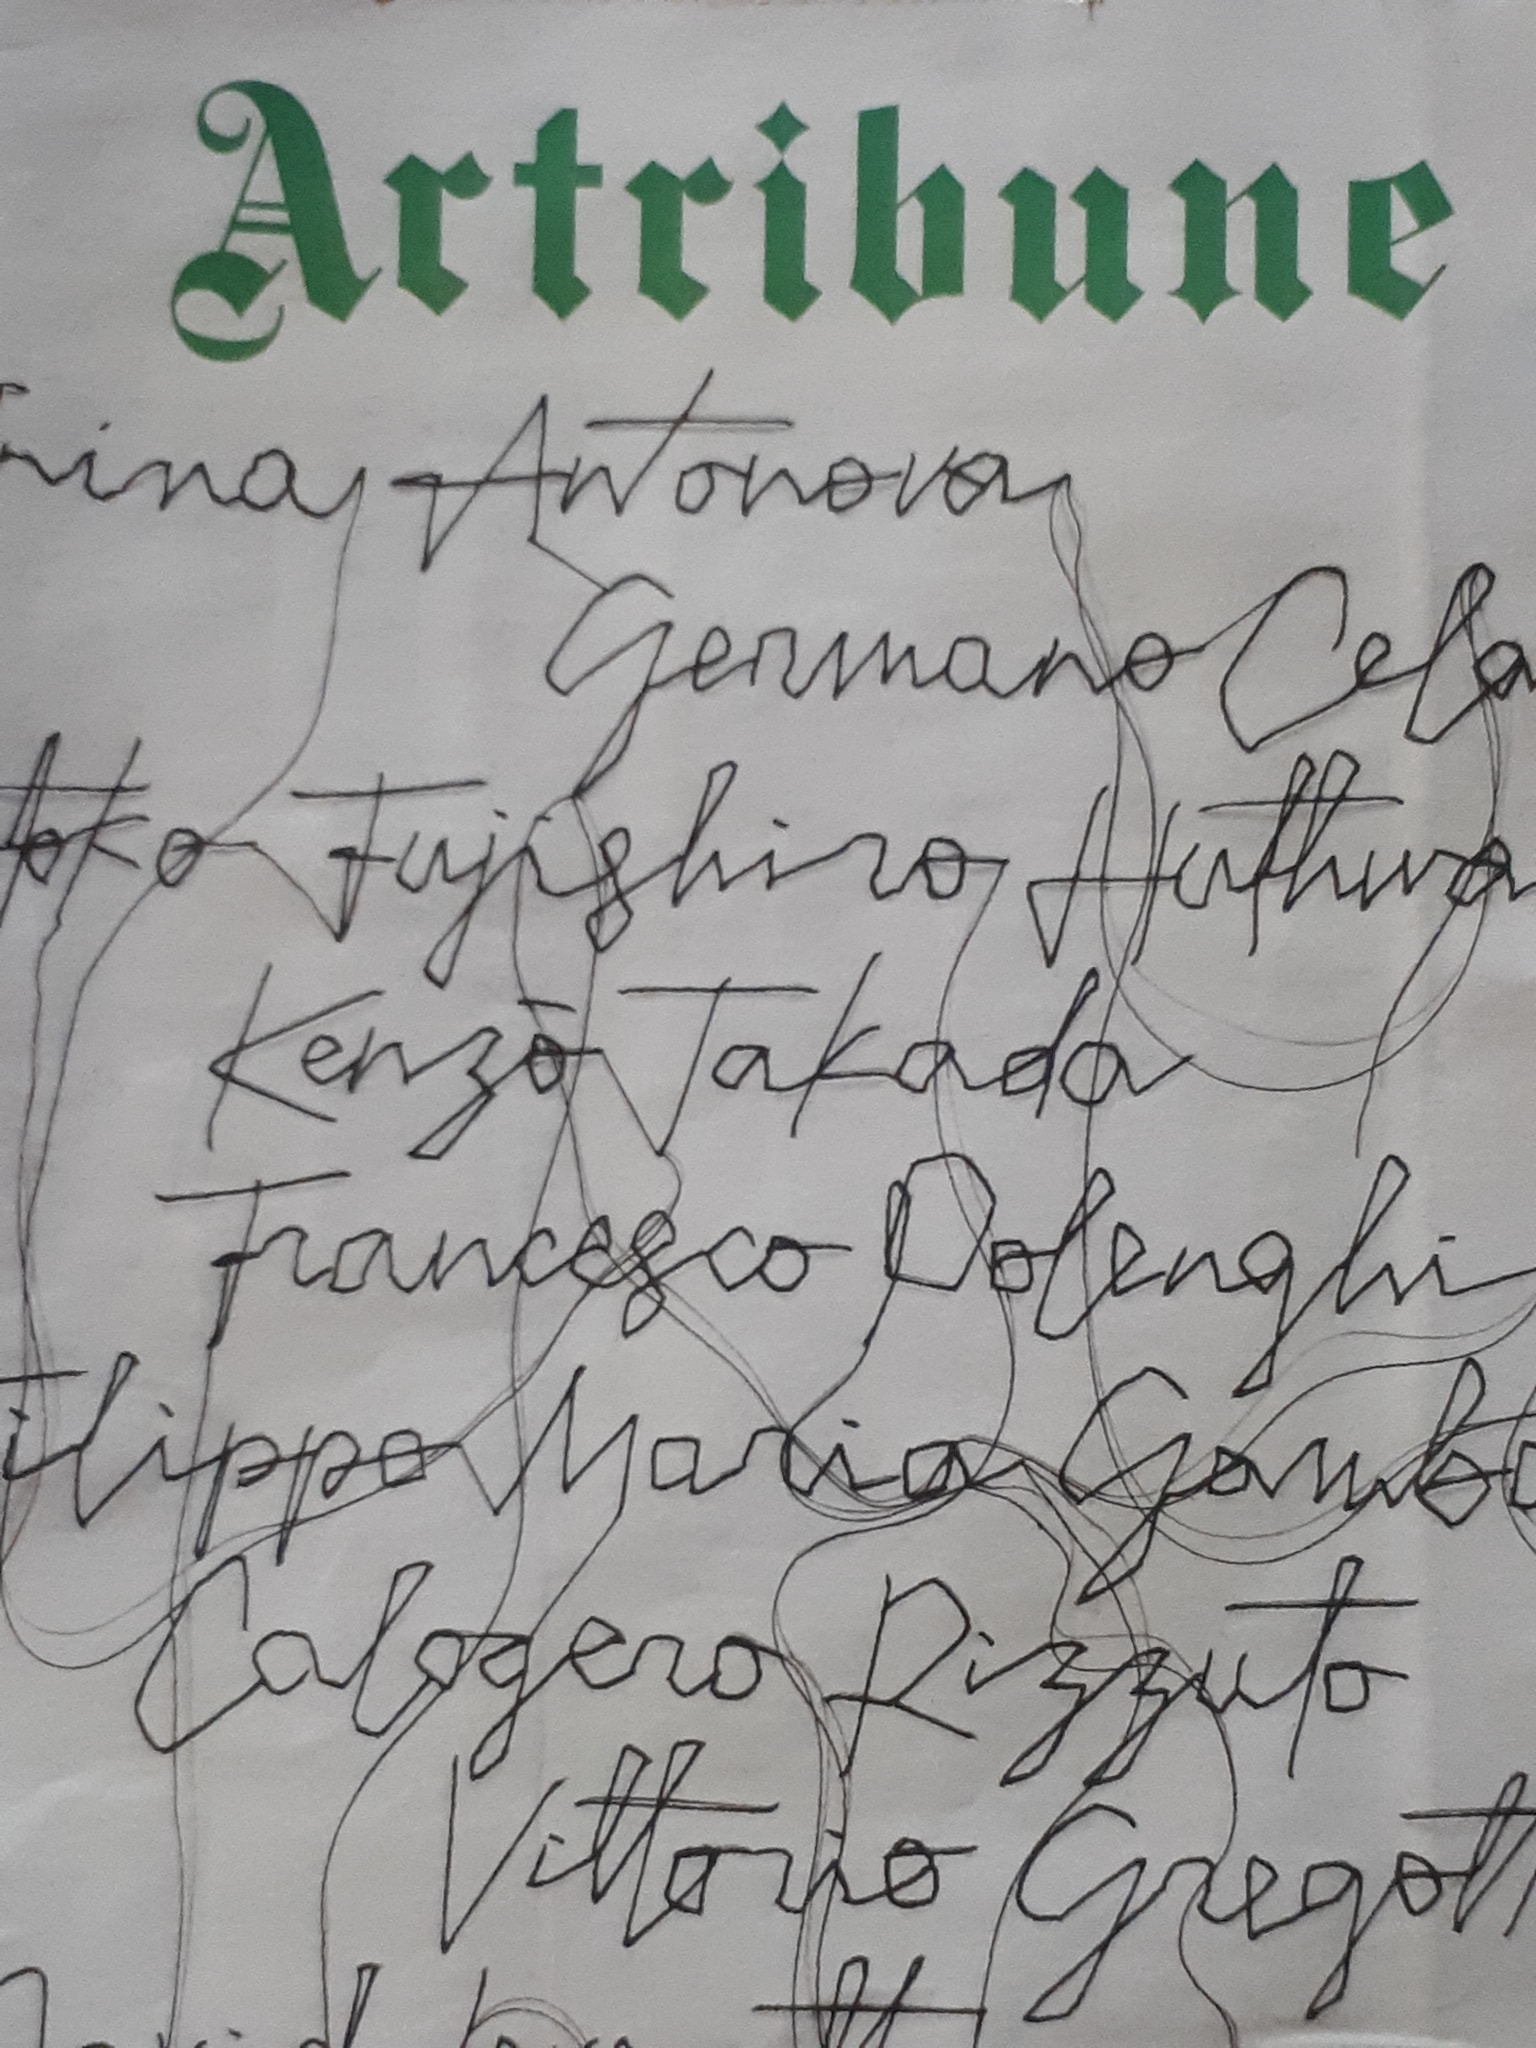 Artribune
Irina Antonova
Germano Cela
Fujishiro Huthwa
Kenzō Takada
Francesco Dolenghi
Filippo Maria Gambi
Calogero Rizzuto
Vittorio Gregotti